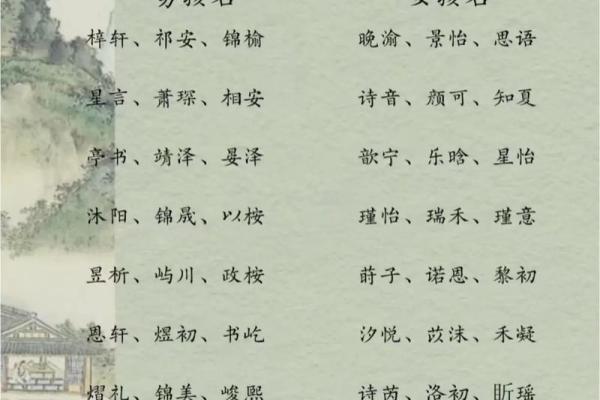 男孩名 女孩名
梓轩、祁安、锦榆 晚渝、景怡、思语
星言、萧琛、相安 诗音、颜可、知夏
亭书、靖泽、晏泽 歆宁、乐晗、星怡
沐阳、锦晟、以桉 瑾怡、瑞禾、瑾意
昱析、屿川、政桉 莳子、诺恩、黎初
恩轩、煜初、书屹 汐悦、苡沫、禾凝
熠礼、锦美、峻熙 诗芮、洛初、昕瑶